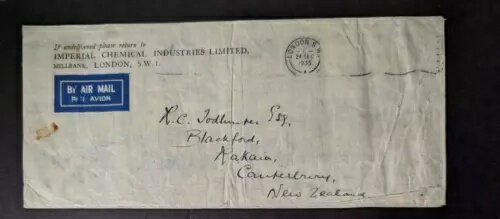 If undelivered please return to
IMPERIAL CHEMICAL INDUSTRIES LIMITED,
MILLBANK, LONDON, S.W.1.
LONDON S.W.
1935
BY AIR MAIL
PAR AVION
R.C. Todhunter Esq,
Blackford,
Rakaia,
Canterbury,
New Zealand